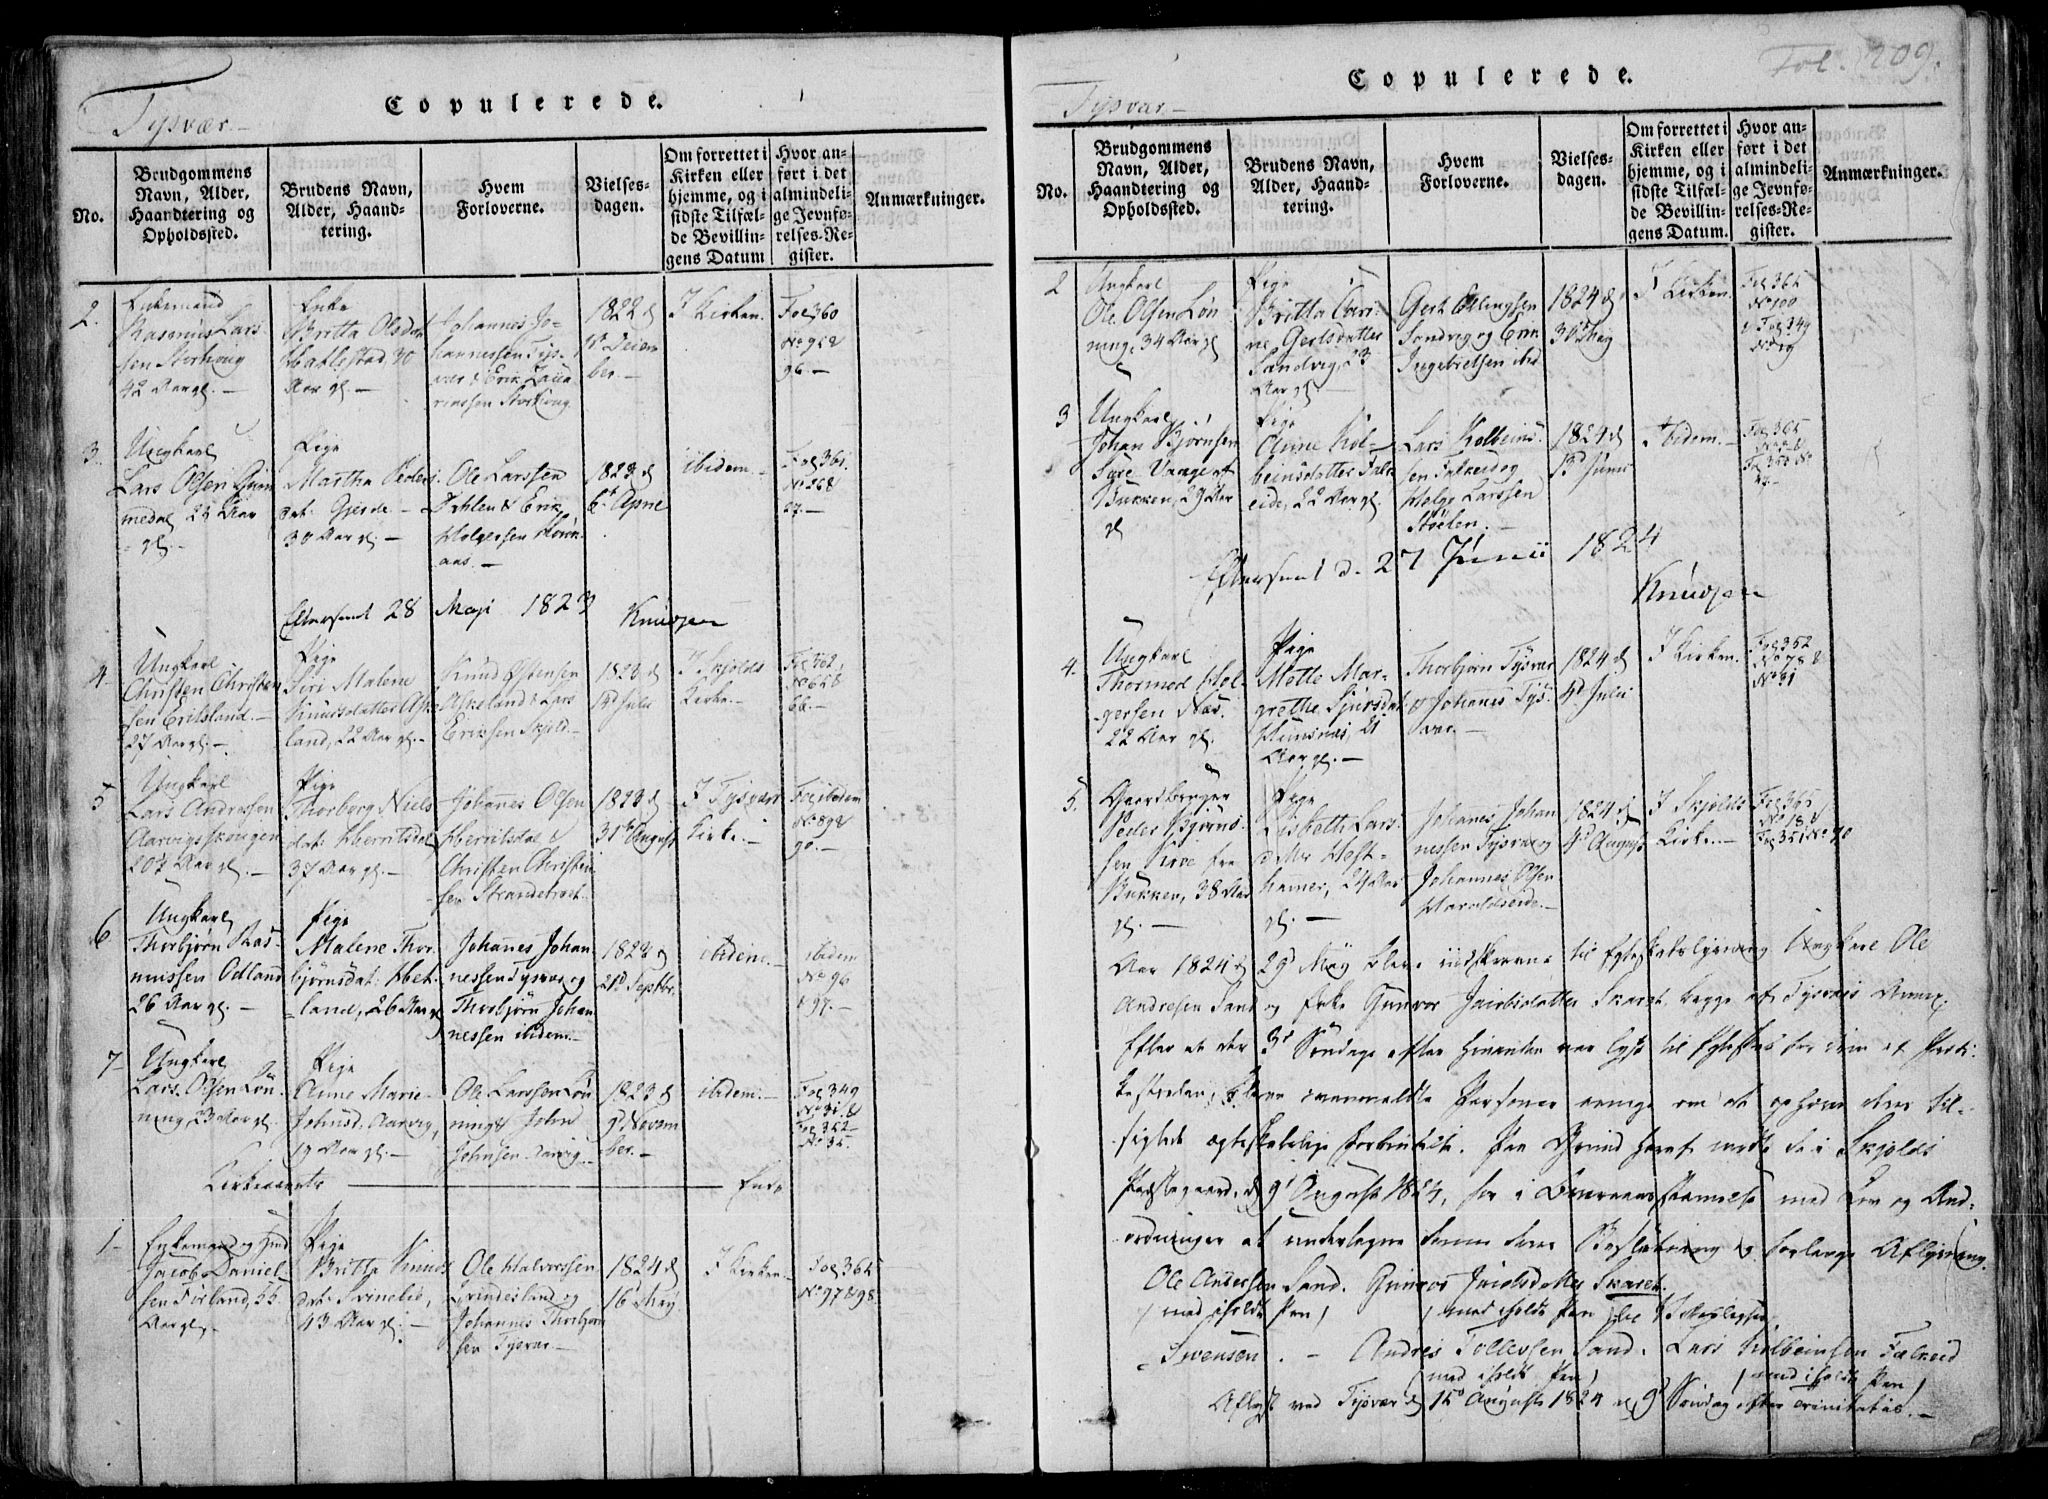 Tysvær.
Copulerede.
No.
Brudgommens Navn, Alder, Haandtering og Opholdssted.
Brudens Navn, Alder, Haandtering.
Hvem Forloverne.
Vielsesdagen.
Om forrettet i Kirken eller hjemme, og i sidste Tilfælde Bevillingens Datum
Hvor anført i det almindelige Jevnførelses-Register.
Anmærkninger.
2.
Enkemand
Rasmus Lars-
sen Storhoug
42 Aar gl.
Enke
Britta Olsdat
Hatlestad 30
Aar gl.
Johannes Jo-
hannessen Tys-
vær & Erik Lau-
ritssen Storhoug
1822 d
1t Decem
ber.
I Kirken.
Fol 360
No 95 &
96.
3.
Ungkarl
Lars Olsen
medal 24 Aar
gl.
Pige
Martha Peders
dat: Gjerde
30 Aar gl.
Ole Larssen
Dahlen & Erik
Holgersen
aas.
1823 d
6t April
ibidem.
Fol 361
No 26 &
27.
Efterseet 28 Maji 1823 Knudsen
4
Ungkarl
Christen Christen
sen Erikland.
27 Aar gl.
Pige
Siri Malene
Knudsdatter Aske
land, 22 Aar gl.
Knud Østensen
Askeland & Lars
Eriksen Skjold
1823 d
Julii
I Skjolds
Kirke.
Fol 362
No 65 &
66.
5
Ungkarl
Lars Andressen
Aarvigsskougen
Aar gl.
Pige
Thorborg Niels
dat: Herritsdal
37 Aar gl.
Johannes Olsen
Herritsdal &
Christen Christen
sen
1823 d
31te August
I Tysvær
Kirke.
Fol ibidem
No 89 &
90.
6
Ungkarl
Thorbjørn Ras-
mussen Odland
26 Aar gl.
Pige
Malene Thor-
bjørnsdat: Het-
land, 26 Aar gl
Johanes Johan
nessen Tysvær og
Thorbjørn Johan
nessen ibidem.
1823 d
21d Septbr.
ibidem.
ibidem
No 96
& 97.
7
Ungkarl
Lars Olsen Løn
ning, 23 Aar gl.
Pige
Anne Marie
Johnsd: Aarvig,
19 Aar gl.
Ole Larssen Løn
ning & John
Johnsen Aarvig.
1823 d
9d Novem
ber.
ibidem.
Fol 349
No 31 &
Fol 352
No 35.
Kirkeaarets Ende
1
Enkemand og
Jacob Daniel-
sen Førland, 55
Aar gl.
Pige
Britta Knuds
dat: Svinelie,
43 Aar gl.
Ole Halvorssen
Grindesland og
Johannes Thorbjørn
sen Tysvær.
1824 d
16 May
I Kirken
Fol 365
No 97 & 98
Fol. 209.
Tysvær
Copulerede.
No.
Brudgommens Navn, Alder, Haandtering og Opholdssted.
Brudens Navn, Alder, Haandtering.
Hvem Forloverne.
Vielsesdagen.
Om forrettet i Kirken eller hjemme, og i sidste Tilfælde Bevillingens Datum.
Hvor anført i det almindelige Jevnførelses-Register.
Anmærkninger.
2
Ungkarl
Ole Olsen Løn
ning, 34 Aar gl
Pige
Britta Cari-
ne Gertsdatter
Sandvig, 23
Aar gl.
Gert Ellingsen
Sandvig og
Ingebretsen ibid
1824 d
30t May
I Kirken.
Fol 365
No 100
& Fol 349
3
Ungkarl
Johan Bjørnsen
Bukken, 29 Aar
gl
Pige
Oline Kol-
beinsdatter Falk
eide, 22 Aar gl.
Lars Kolbeins
sen Falkeid og
Helge Larssen
Stølen.
1824 d
13d Junii
Ibidem.
Fol 365
Eftersaaet d. 27 Junii 1824
Knudsen
4.
Ungkarl
Thormod Hol-
gersen Næs.
22 Aar gl.
Pige
Mette Mar-
grethe Sjursdat
Hunsnæs, 21
Aar gl.
Thorbjørn Tysvær
& Johanes Tys
vær.
1824 d
4d Julii
I Kirken.
Fol 352
No 78 &
No 31
5.
Gaardbruger
Peder Bjørns-
sen fra
Bukken, 38 Aar
gl.
Pige
Lisbeth Lars-
datter Hest-
hamer, 24 Aar
gl.
Johanes Johan
nessen Tysvær og
Johannes Olsen
Haraldseide.
1824 d
August
I Skjolds
Kirke.
Fol 365
No 18 &
Fol 351 No 90
Aar 1824 d 29d May blev indskrevne til Egteskabslysning Ungkarl Ole
Andresen Sand og Enke Gunvor Jacobsdatter Skaret begge af Tysvær Annex.
Efter at der 3d Søndage efter hinanden var lyst til Egteskab for dem af Prædi-
kestolen, bleve ommeldte Personer eenige om at ophæve deres til-
sigtede ægteskabelige Forbindelse. Paa Grund heraf mødte de i Skjolds
Præstegaard d 9d August 1824, for i Overensstemmelse med Lov og And-
ordninger at undertegne denne deres Beslutning og forlange Aflysning.
Ole Andersen Sand. Gunvor Jacobsdatter Skaret.
(med iholdt Pen) (med iholdt Pen)
Svensen. Andres Tollevsen Sand. Lars Kolbeinsen Falkeid
(med iholdt Pen) (med iholdt Pen)
Aflyst ved Tysvær d 15d August 1824 d 9d Søndag efter Trinitatis.